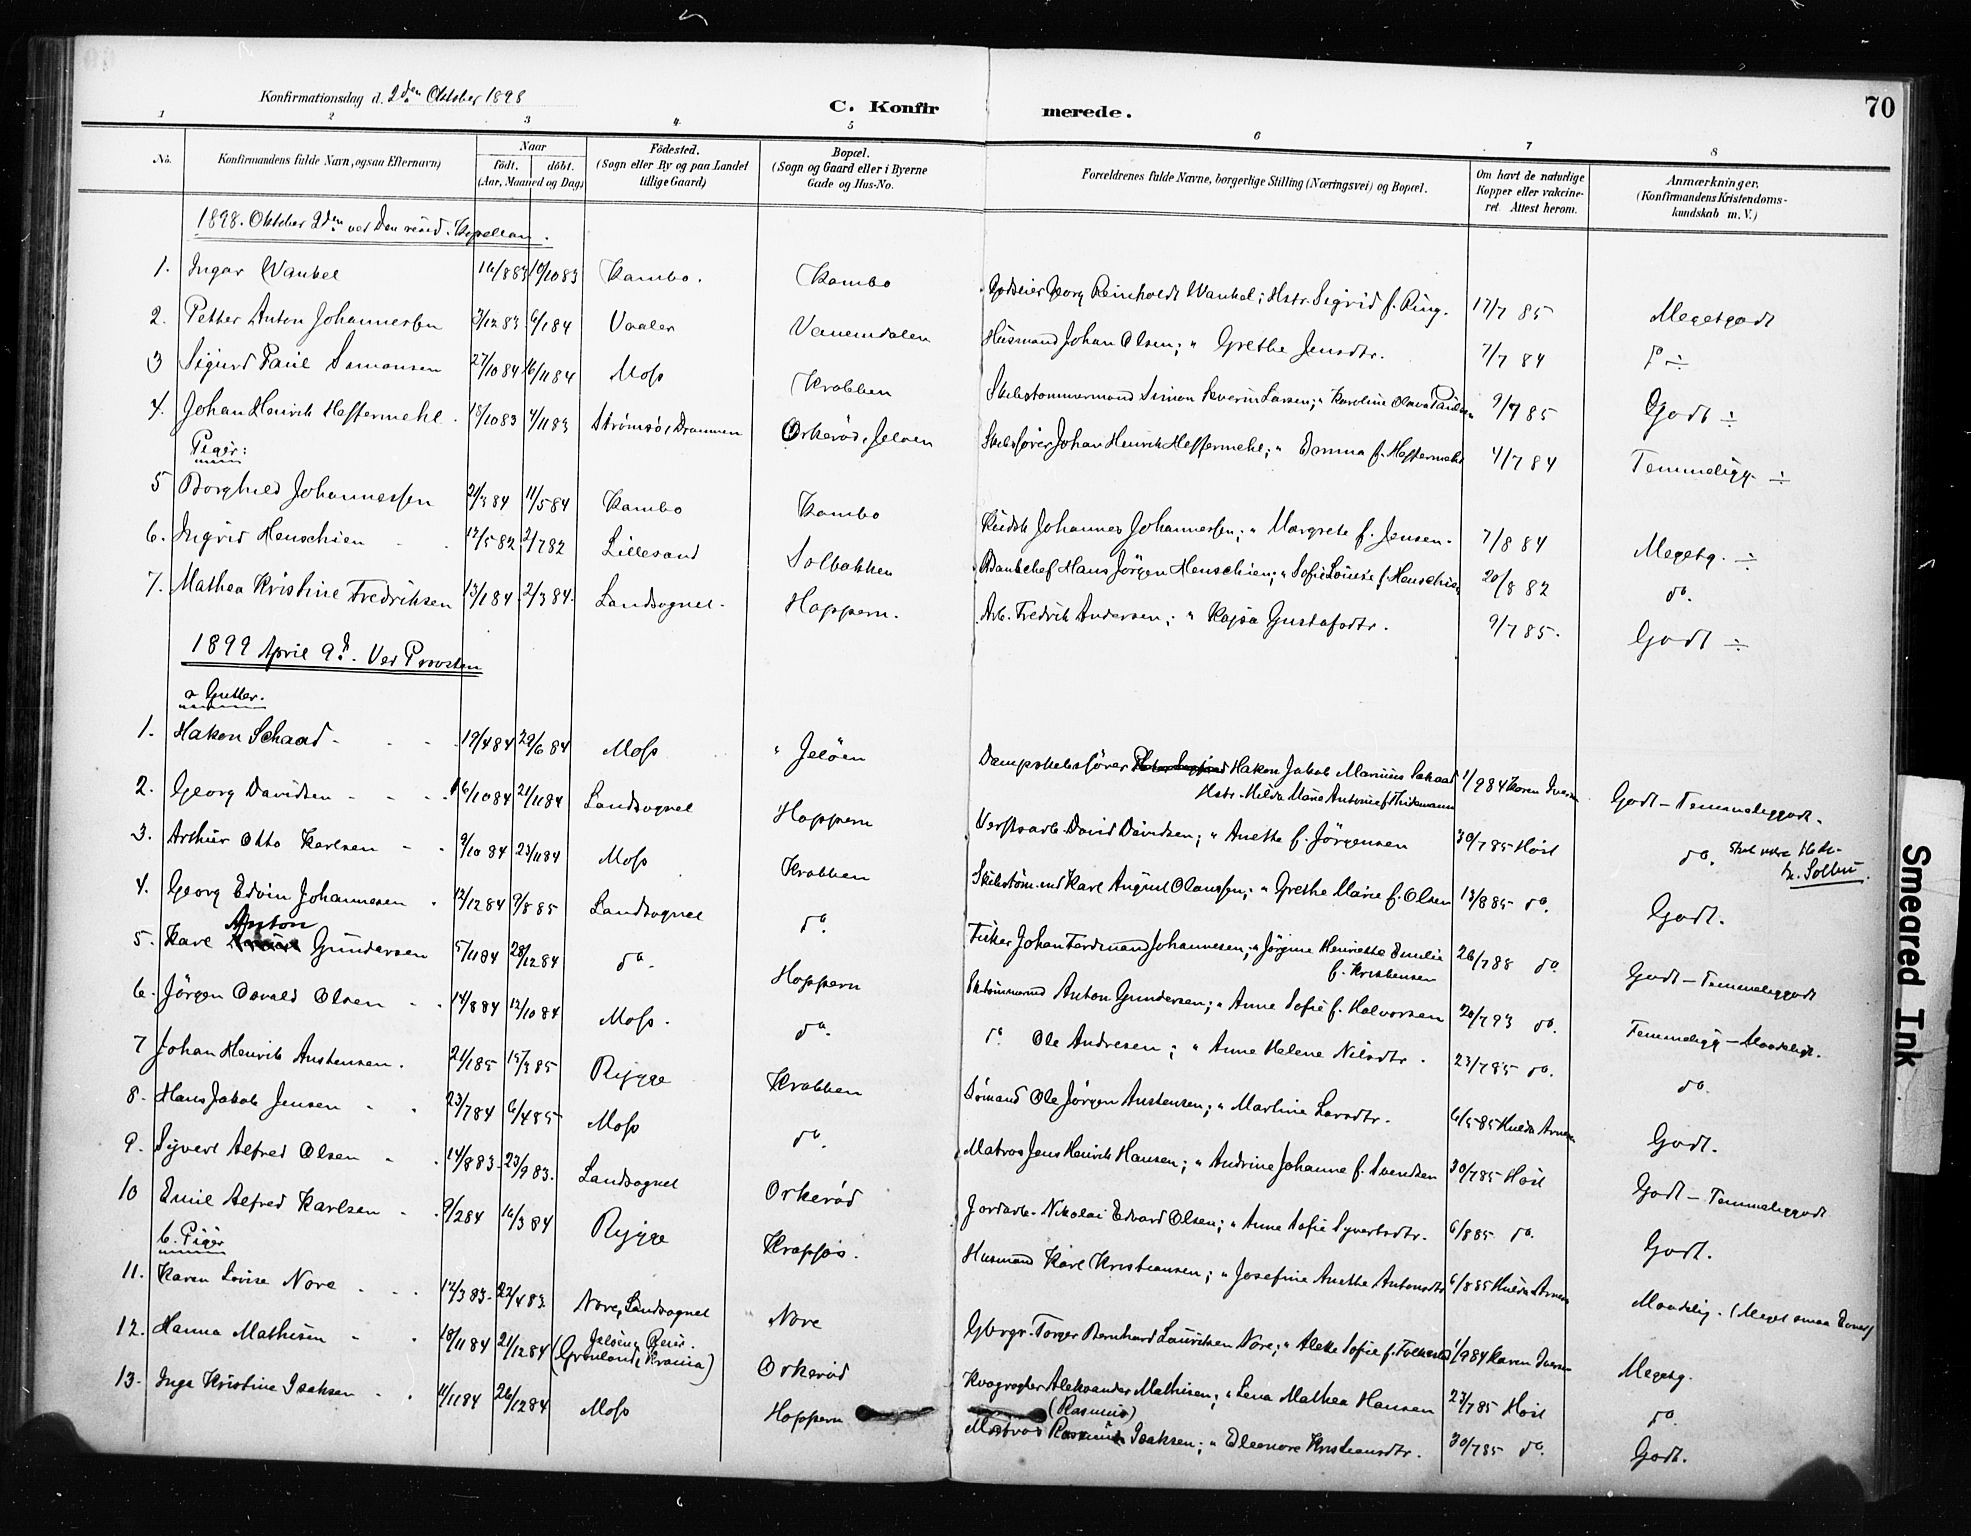 Konfirmationsdag d. 2den Oktober 1898
C. Konfirmerede.
70
1 2 3 4 5 6 7 8
No. Konfirmandens fulde Navn, ogsaa Efternavn) Naar födt. döbt. (Aar, Maaned og Dag) Födested. (Sogn eller By og paa Landet tillige Gaard) Bopæl. (Sogn og Gaard eller i Byerne Gade og Hus-No. Forældrenes fulde Navne, borgerlige Stilling (Næringsvei) og Bopæl. Om havt de naturlige Kopper eller vakcineret. Attest herom. Anmærkninger. (Konfirmandens Kristendomskundskab m. V.)
1898. Oktober 2den ved Den resid. Kapellan.
1. Ingar Wankel 16/8 83 10/10 83 Kambo. Kambo Godseier Georg Reinholdt Wankel; Hstr. Sigrid f. Ring. 17/7 85 Megetgodt
2. Petter Anton Johannessen 3/12 83 6/1 84 Vaaler Vanemdalen Husmand Johan Olsen; " Grethe Jensdtr. 7/7 84 do ÷
3 Sigurd Paul Simonsen 27/10 84 16/11 84 Moss Krabben Skibstømmermand Simon Severin Larsen; " Karoline Olava Paulsen 9/7 85 Godt ÷
4. Johan Henrik Heftermehl 18/10 83 4/11 83 Strømsö, Drammen Orkeröd, Jelöen Skibsfører Johan Henrik Heftermehl; " Emma f. Heftermehl 4/7 84 Temmeligg. ÷
Piger:
5 Borghild Johannessen 21/3 84 11/5 84 Kambo Kambo Kudsk Johannes Johannessen; " Margrete f. Jensen. 7/8 84 Megetg. ÷
6. Ingrid Henschien 17/5 82 2/7 82 Lillesand Solbakken Bankchef Hans Jörgen Henschien; " Sofie Louise f. Henschien 20/8 82 do.
7. Mathea Kristine Fredriksen 13/1 84 2/3 84. Landsognet. Hoppern. Arb. Fredrik Andersen; " Kajsa Gustafsdtr. 9/7 85. Godt ÷
1899 April 9d. Ved Provsten
a Gutter.
1. Hakon Schaad 19/4 84 29/6 84 Moss " Jelöen Dampskibsförer Hakon Jakob Marinius Schaad 1/9 84 Karen Iversen Godt - Temmeliggodt.
Hstr. Hilda Marie Antonie f. Thidemann
2. Georg Davidsen 16/10 84 21/11 84 Landsognet Hoppern Verftsarb. David Davidsen; " Anette f. Jörgensen 30/7 85 Höst do. Skal være
3. Arthur Otto Karlsen 9/10 84 23/11 84 Moss Krabben Skibstöm.md Karl August Olaussen; " Grethe Marie f. Olsen 13/8 85 do. Godt.
4. Georg Edvin Johannesen 12/12 84 9/8 85 Landsognet do. Fisker Johan Ferdinand Johannesen; " Jörgine Henriette Emilie f. Kristensen 26/7 88 do. Godt - Temmeliggodt
5. Karl Anton Gundersen 5/11 84 28/12 84 do. Hoppern Sktömmermd Anton Gundersen; " Anne Sofie f. Halvorsen 20/7 93 do. Temmeligg - Maadelig.
6. Jörgen Osvald Olsen 14/8 84 12/10 84 Moss. do. do. Ole Andresen; " Anne Helene Nilsdtr. 23/7 85 do. do.
7 Johan Henrik Austensen. 21/1 85 15/3 85 Rygge Krabben Sömand Ole Jörgen Austensen; " Martine Larsdtr. 6/5 85 Hulda Arnesen Godt.
8. Hans Jakob Jensen 23/7 84 6/4 85 Moss do. Matros Jens Henrik Hansen; " Andrine Johanne f. Svendsen 30/7 85 Höst Godt - Temmeliggodt
9. Syvert Alfred Olsen 14/8 83. 23/9 83. Landsognet Orkeröd Jordarb. Nikolai Edvard Olsen; " Anne Sofie Syvertsdtr. 6/8 85 do. Godt.
10 Emil Alfred Karlsen 9/2 84 16/3 84 Rygge Krapfos. Husmand Karl Kristiansen; " Josefine Anette Antonsdtr 6/8 85 Hulda Arnesen Maadelig. (Meget smaa Evner)
b. Piger
11. Karen Lovise Nore 12/3 83. 22/4 83. Nore, Landsognet Nore Gbrgr. Torger Bernhard Lauritsen Nore; " Alette Sofie f. 1/9 84 Karen Iversen Megetg.
12. Hanna Mathisen 18/11 84 21/12 84 Jelöen, Reier. (Grönland, Krania) Orkeröd Kvægrögter Aleksander Mathisen; " Lena Mathea Hansen 23/7 85 Höst do.
13. Inga Kristine Isaksen 11/11 84 26/12 84 Moss Hoppern Matros (Rasmus) Isaksen; " Eleonore Kristiansdtr. 30/7 85 do. Godt.
Smeared Ink